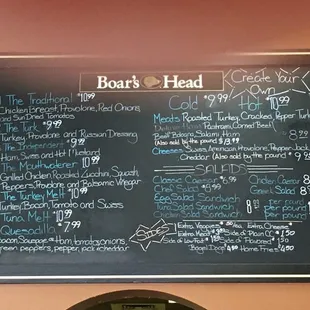 Boar's Head
The Traditional $10.99
Chicken Breast, Provolone, Red Onions,
and Sun Dried Tomatos
The Turk $9.99
Turkey, Provolone and Russian Dressing
The Independence $9.99
Ham, Swiss and Hot Mustard
The Mouthwatering $10.99
Grilled Chicken, Roasted Zucchini, Squash,
Peppers, Provolone, and Balsamic Vinegar
The Turkey Melt $10.99
Turkey, Bacon, Tomato and Swiss
Tuna Melt $10.99
Quesadilla $7.99
Bacon, Sausage or Ham, tomatoes, onions,
green peppers, pepper jack, cheddar
Create Your
Own
Cold $9.99 Hot $10.99
Meats: Roasted Turkey, Cracked Pepper Turkey
Pastrami, Corned Beef,
Bologna, Salami, Ham
(Also sold by the pound $13.99)
Cheeses: Swiss, American, Provolone, Pepper-Jack
Cheddar (Also sold by the pound $9
SALADS
Classic Caesar Chicken Caesar
Chef Salad Greek Salad
Egg Salad Sandwich per pound
Tuna Salad Sandwich per pound
Chicken Salad Sandwich per pound
Extra Veggies Extra Cheese
Extra Meat Side of Plain CC $1.50
Side of Lowfat Side of Flavored
Bagel Home Fries